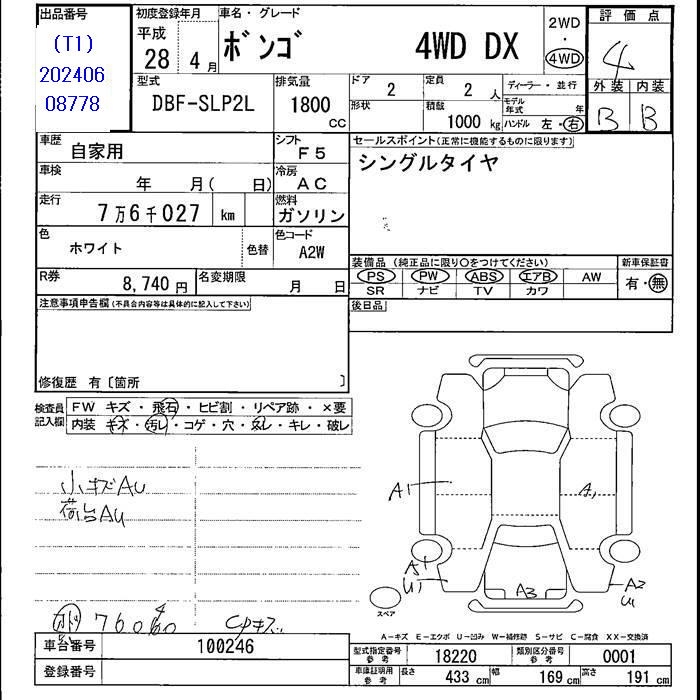 出品番号
(T1)
202406
08778
初度登録年月
平成
28 年 4 月
車名・グレード
ボンゴ 4WD DX
2WD
・
4WD
評価点
4
外装 内装
B B
型式
DBF-SLP2L
排気量
1800
CC
ドア 2
定員 2 人
ディーラー・並行
形状
積載 1000 kg
モデル年式 年
ハンドル 左・右
車歴
自家用
シフト
F5
セールスポイント(正常に機能するものに限ります)
シングルタイヤ
車検
年 月( 日)
冷房
AC
走行
7万6千027 km
燃料
ガソリン
色
ホワイト
色替
色コード
A2W
装備品 (純正品に限り〇をつけてください)
新車保証書
PS PW ABS エアB AW
有・無
SR ナビ TV カワ
R券
8,740 円
名変期限
月 日
後日品
注意事項申告欄(不具合内容等は具体的に記入して下さい)
修復歴 有〔箇所 〕
検査員
記入欄
FW キズ・飛石・ヒビ割・リペア跡・×要
内装 キズ・汚レ・コゲ・穴・反レ・キレ・破レ
小キズAU
荷台AU
A1
A1
A1
U1
A3
A2
U1
スペア
A-キズ E-エクボ U-凹み W-補修跡 S-サビ C-腐食 XX-交換済
車台番号
100246
登録番号
型式指定番号
参考
18220
類別区分番号
参考
0001
車庫証明用
参考
長さ 433 cm
幅 169 cm
高さ 191 cm